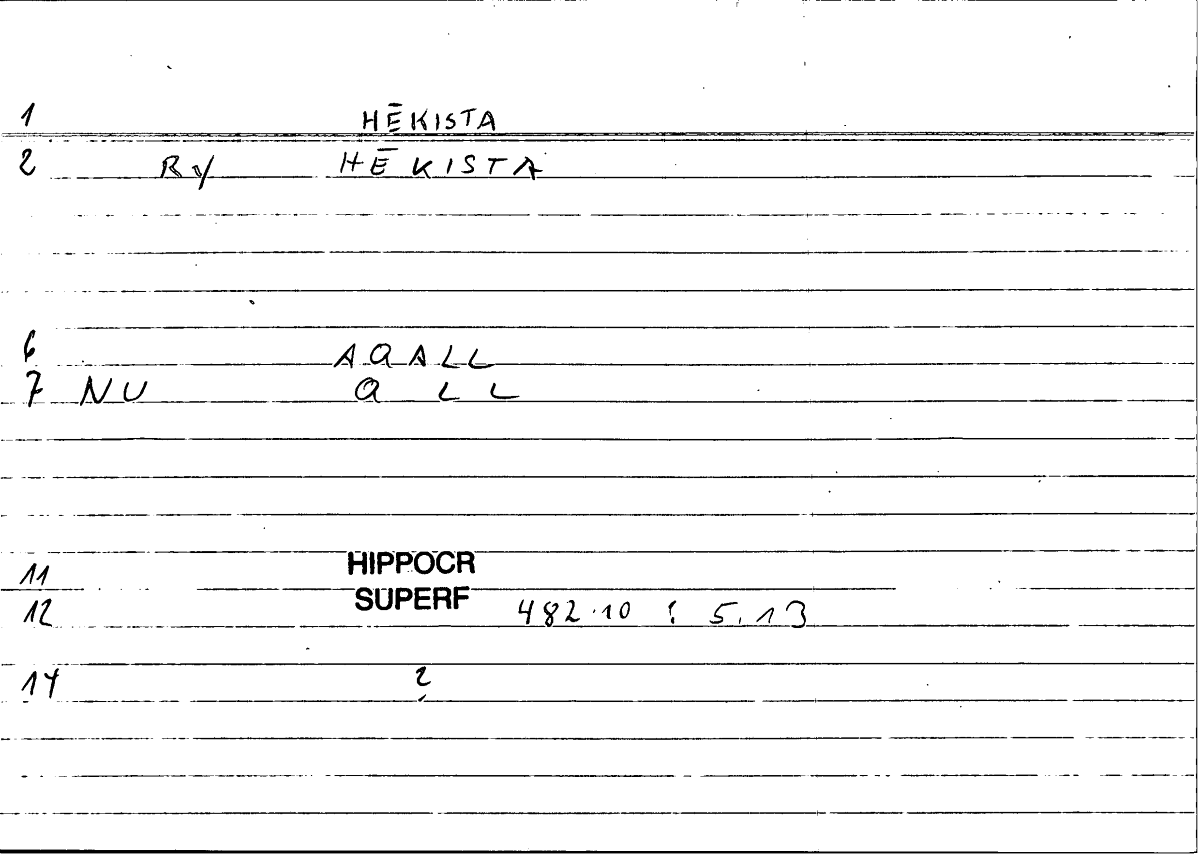 1 HĒKISTA
2 Ry HĒKISTA
6 AQALL
7 NU Q LL
11 HIPPOCR
12 SUPERF 482.10 ! 5.13
14 2